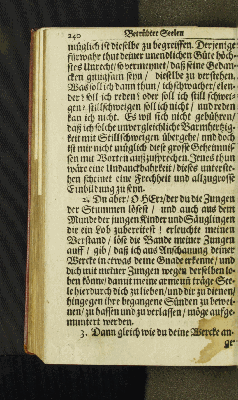 240 Betrübter Seelen
müglich ist dieselbe zu begreiffen. Derjenige
fürwahr thut deiner unendlichen Güte höch-
stes Unrecht/ so vermeynet/ daß seine Gedan-
cken gnugsam seyn / dieselbe zu verstehen.
Was soll ich dann thun / ich schwacher/ elen-
der? soll ich reden? oder soll ich still schwei-
gen? stillschweigen soll ich nicht/ und reden
kan ich nicht. Es wil sich nicht gebühren/
daß ich solche unvergleichliche Barmhertzig-
keit mit Stillschweigen übergehe/ und doch
ist mir nicht müglich diese grosse Geheimnis-
sen mit Worten außzusprechen. Jenes thun
wäre eine Undanckbarkeit/ dieses unterste-
hen scheinet eine Frechheit und allzugrosse
Einbildung zu seyn.
2. Du aber/ O HErr/ der du die Zungen
der Stummen lösest / und auch aus dem
Munde der jungen Kinder und Säuglingen
dir ein Lob zubereitest! erleuchte meinen
Verstand/ löse die Bande meiner Zungen
auff / gib/ daß ich aus Anschauung deiner
Wercke in etwas deine Gnade erkenne/ und
dich mit meiner Zungen wegen derselben lo-
ben könne/ damit meine arme und träge See-
le hierdurch dich zu lieben/ und dir zu dienen/
hingegen ihre begangene Sünden zu bewei-
nen/ zu hassen und zu verlassen/ möge aufge-
muntert werden.
3. Dann gleich wie du deine Wercke an-
ge-